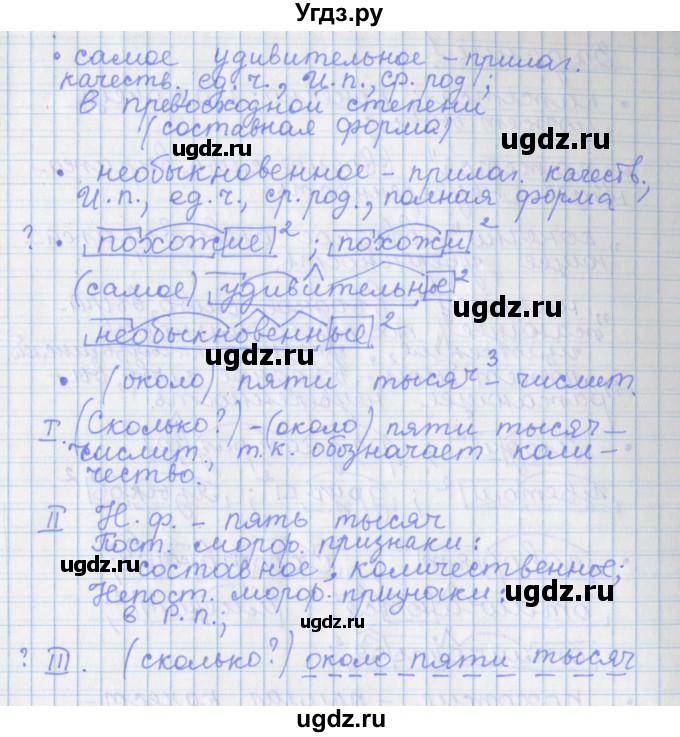 Угдз.ру
• самое удивительное – прилаг.
качеств. ед. ч., И. п., ср. род;
В превосходной степени
(составная форма)
ugdz.ru ugdz.ru
• необыкновенное – прилаг. качеств.,
И. п., ед. ч., ср. род., полная форма
? • похожие²; похожи²
(самое) удивительные²
ugdz.ru
необыкновенные²
ugdz.ru
• (около) пяти тысяч³ – числит.
I. (Сколько?) – (около) пяти тысяч –
числит., т. к. обозначает коли –
чество.
ugdz.ru
II Н. ф. – пять тысяч
Пост. морф. признаки:
ugdz.ru
составное, количественное;
ugdz.ru
Непост. морф. признаки:
в Р. п.;
ugdz.ru
? III. (сколько?) около пяти тысяч
ugdz.ru
ugdz.ru